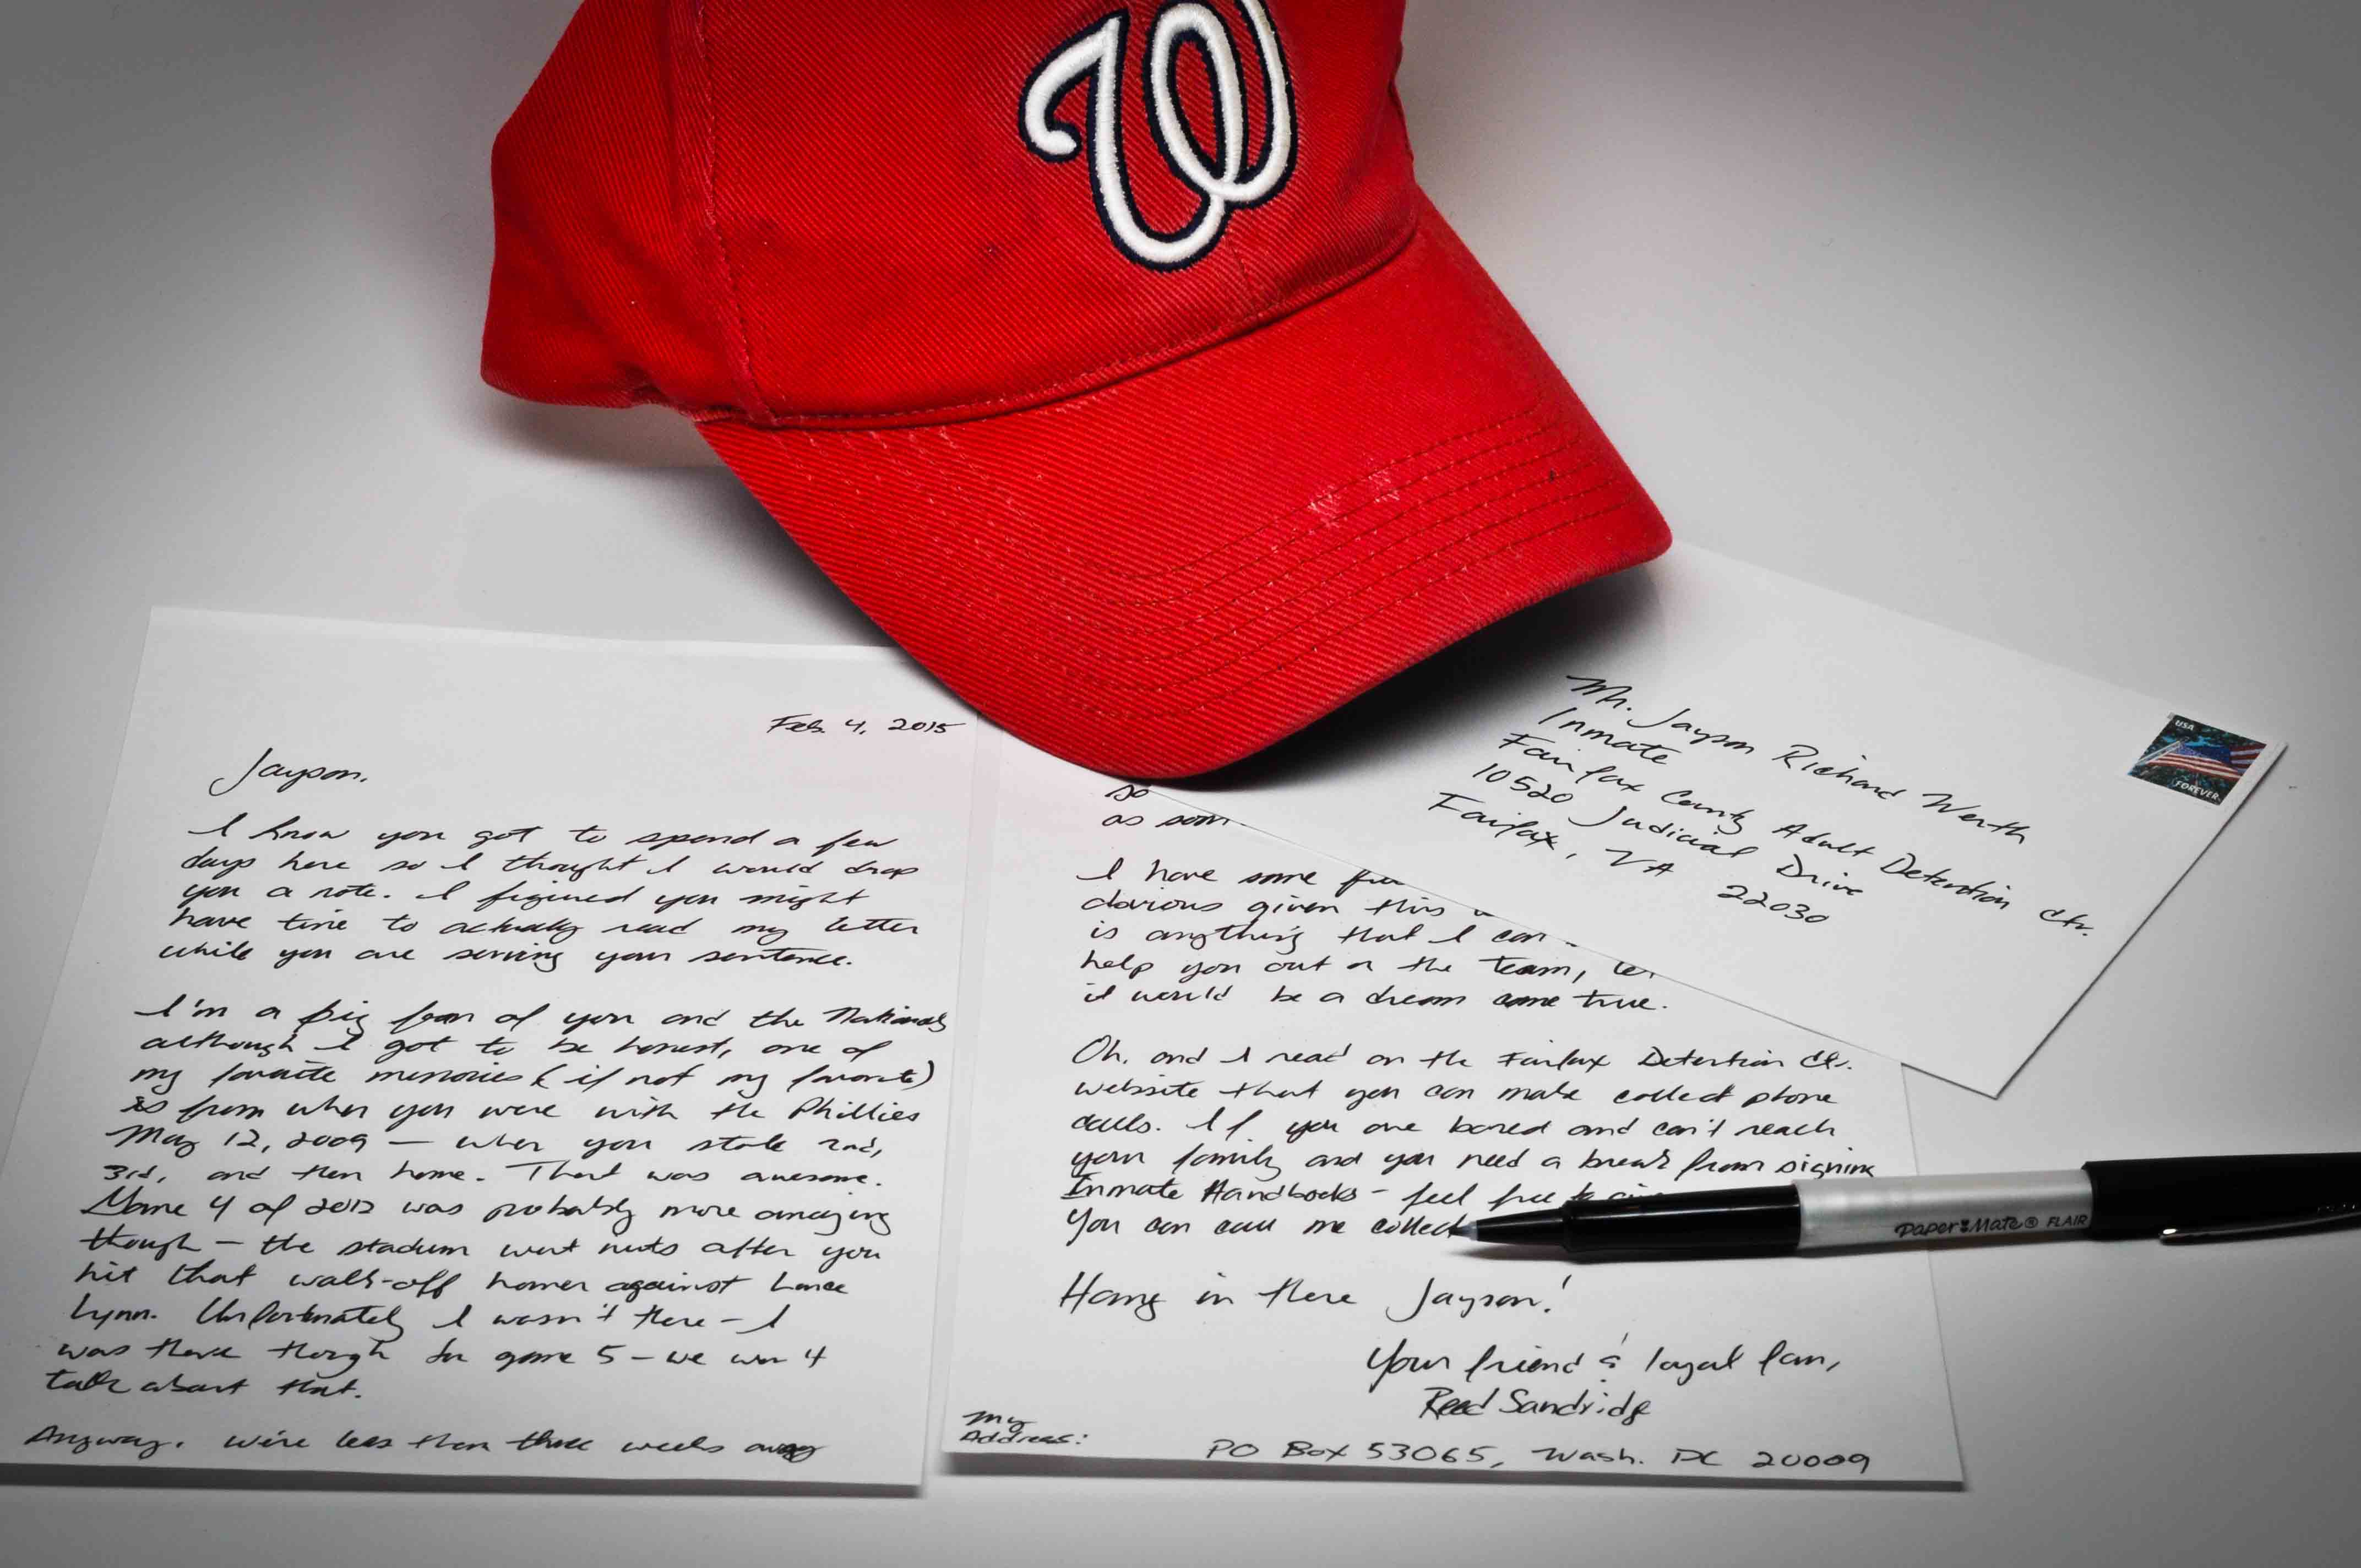 W
Feb. 4, 2015
Jayson,
I know you got to spend a few
days here so I thought I would drop
you a note. I figured you might
have time to actually read my letter
while you are serving your sentence.
I'm a big fan of you and the Nationals
although I got to be honest, one of
my favorite memories (if not my favorite)
is from when you were with the Phillies
May 12, 2009 — when you stole 2nd,
3rd, and then home. That was awesome.
Game 4 of 2012 was probably more amazing
though — the stadium went nuts after you
hit that walk-off homer against Lance
Lynn. Unfortunately I wasn't there — I
was there though for game 5 — we won't
talk about that.
Anyway, we're less than three weeks away
so
as soon
I have some
given this
is anything that I can
help you out or the team, let
it would be a dream come true.
Oh, and I read on the Fairfax Detention Ctr.
website that you can make collect phone
calls. If you are bored and can't reach
your family and you need a break from signing
Inmate Handbooks - feel free to
You can call me collect
Hang in there Jayson!
Your friend & loyal fan,
Reed Sandridge
My
Address:
PO Box 53065, Wash. DC 20009
Mr. Jayson Richard Werth
Inmate
Fairfax County Adult Detention Ctr.
10520 Judicial Drive
Fairfax, VA 22030
USA
FOREVER
Paper Mate® FLAIR